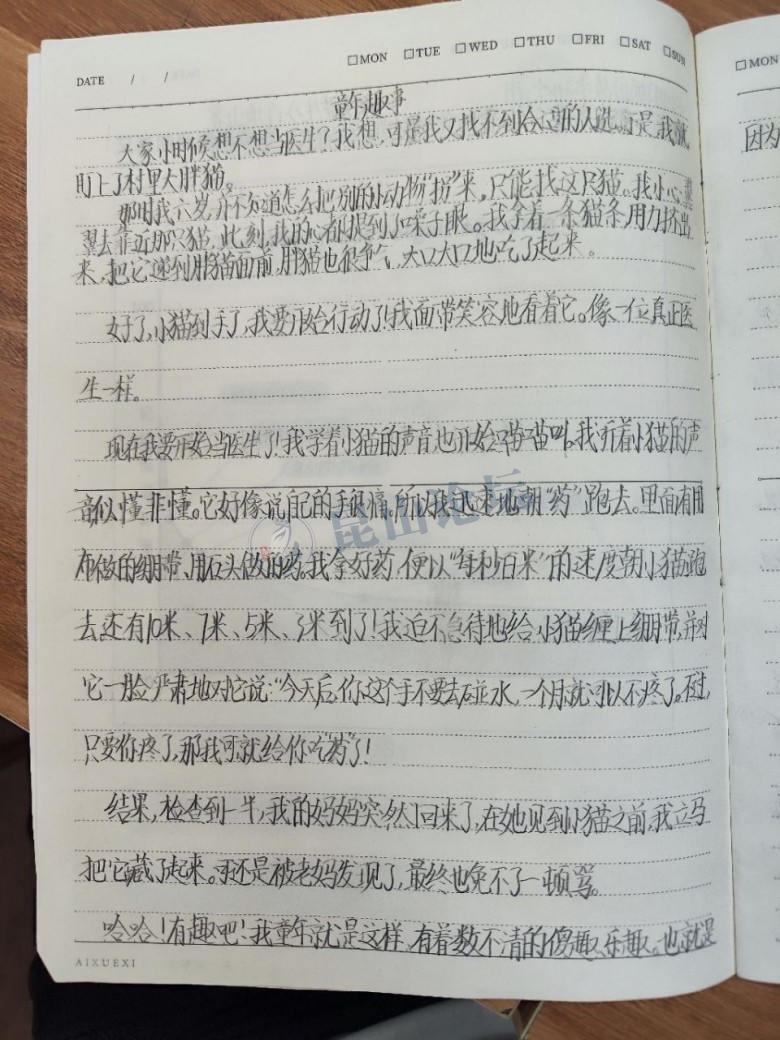 DATE / / □MON □TUE □WED □THU □FRI □SAT □SUN
□MON
童年趣事
大家小时候想不想当医生?我想,可是我又找不到合适的人选,于是我就
盯上了村里大胖猫。
因为
那时我六岁,并不知道怎么把别的小动物“拐”来,只能找这只猫。我小心翼
翼去靠近那只猫,此刻,我的心都提到了嗓子眼。我拿着一条猫条用力挤出
来,把它递到胖猫面前,胖猫也很争气,大口大口地吃了起来。
好了,小猫到手了,我要开始行动了!我面带笑容地看着它。像一位真正医
生一样。
现在我要开始当医生了!我学着小猫的声音也开始喵喵叫。我听着小猫的声
音似懂非懂。它好像说自己的手很痛,所以我迅速地朝“药”跑去。里面有用
布做的绷带、用石头做的药。我拿好药,便以“每秒百米”的速度朝小猫跑
去,还有10米、7米、5米、3米到了!我迫不急待地给小猫缠上绷带,并对
它一脸严肃地对它说:“今天后,你这个手不要去碰水,一个月就可以不疼了。不过,
只要你疼了,那我可就给你吃“药”了!
结果,检查到一半,我的妈妈突然回来了,在她见到小猫之前,我立马
把它藏了起来。可还是被老妈发现了,最终也免不了一顿骂。
哈哈!有趣吧!我童年就是这样,有着数不清的傻趣、乐趣。也就是
AIXUEXI
昆山论坛